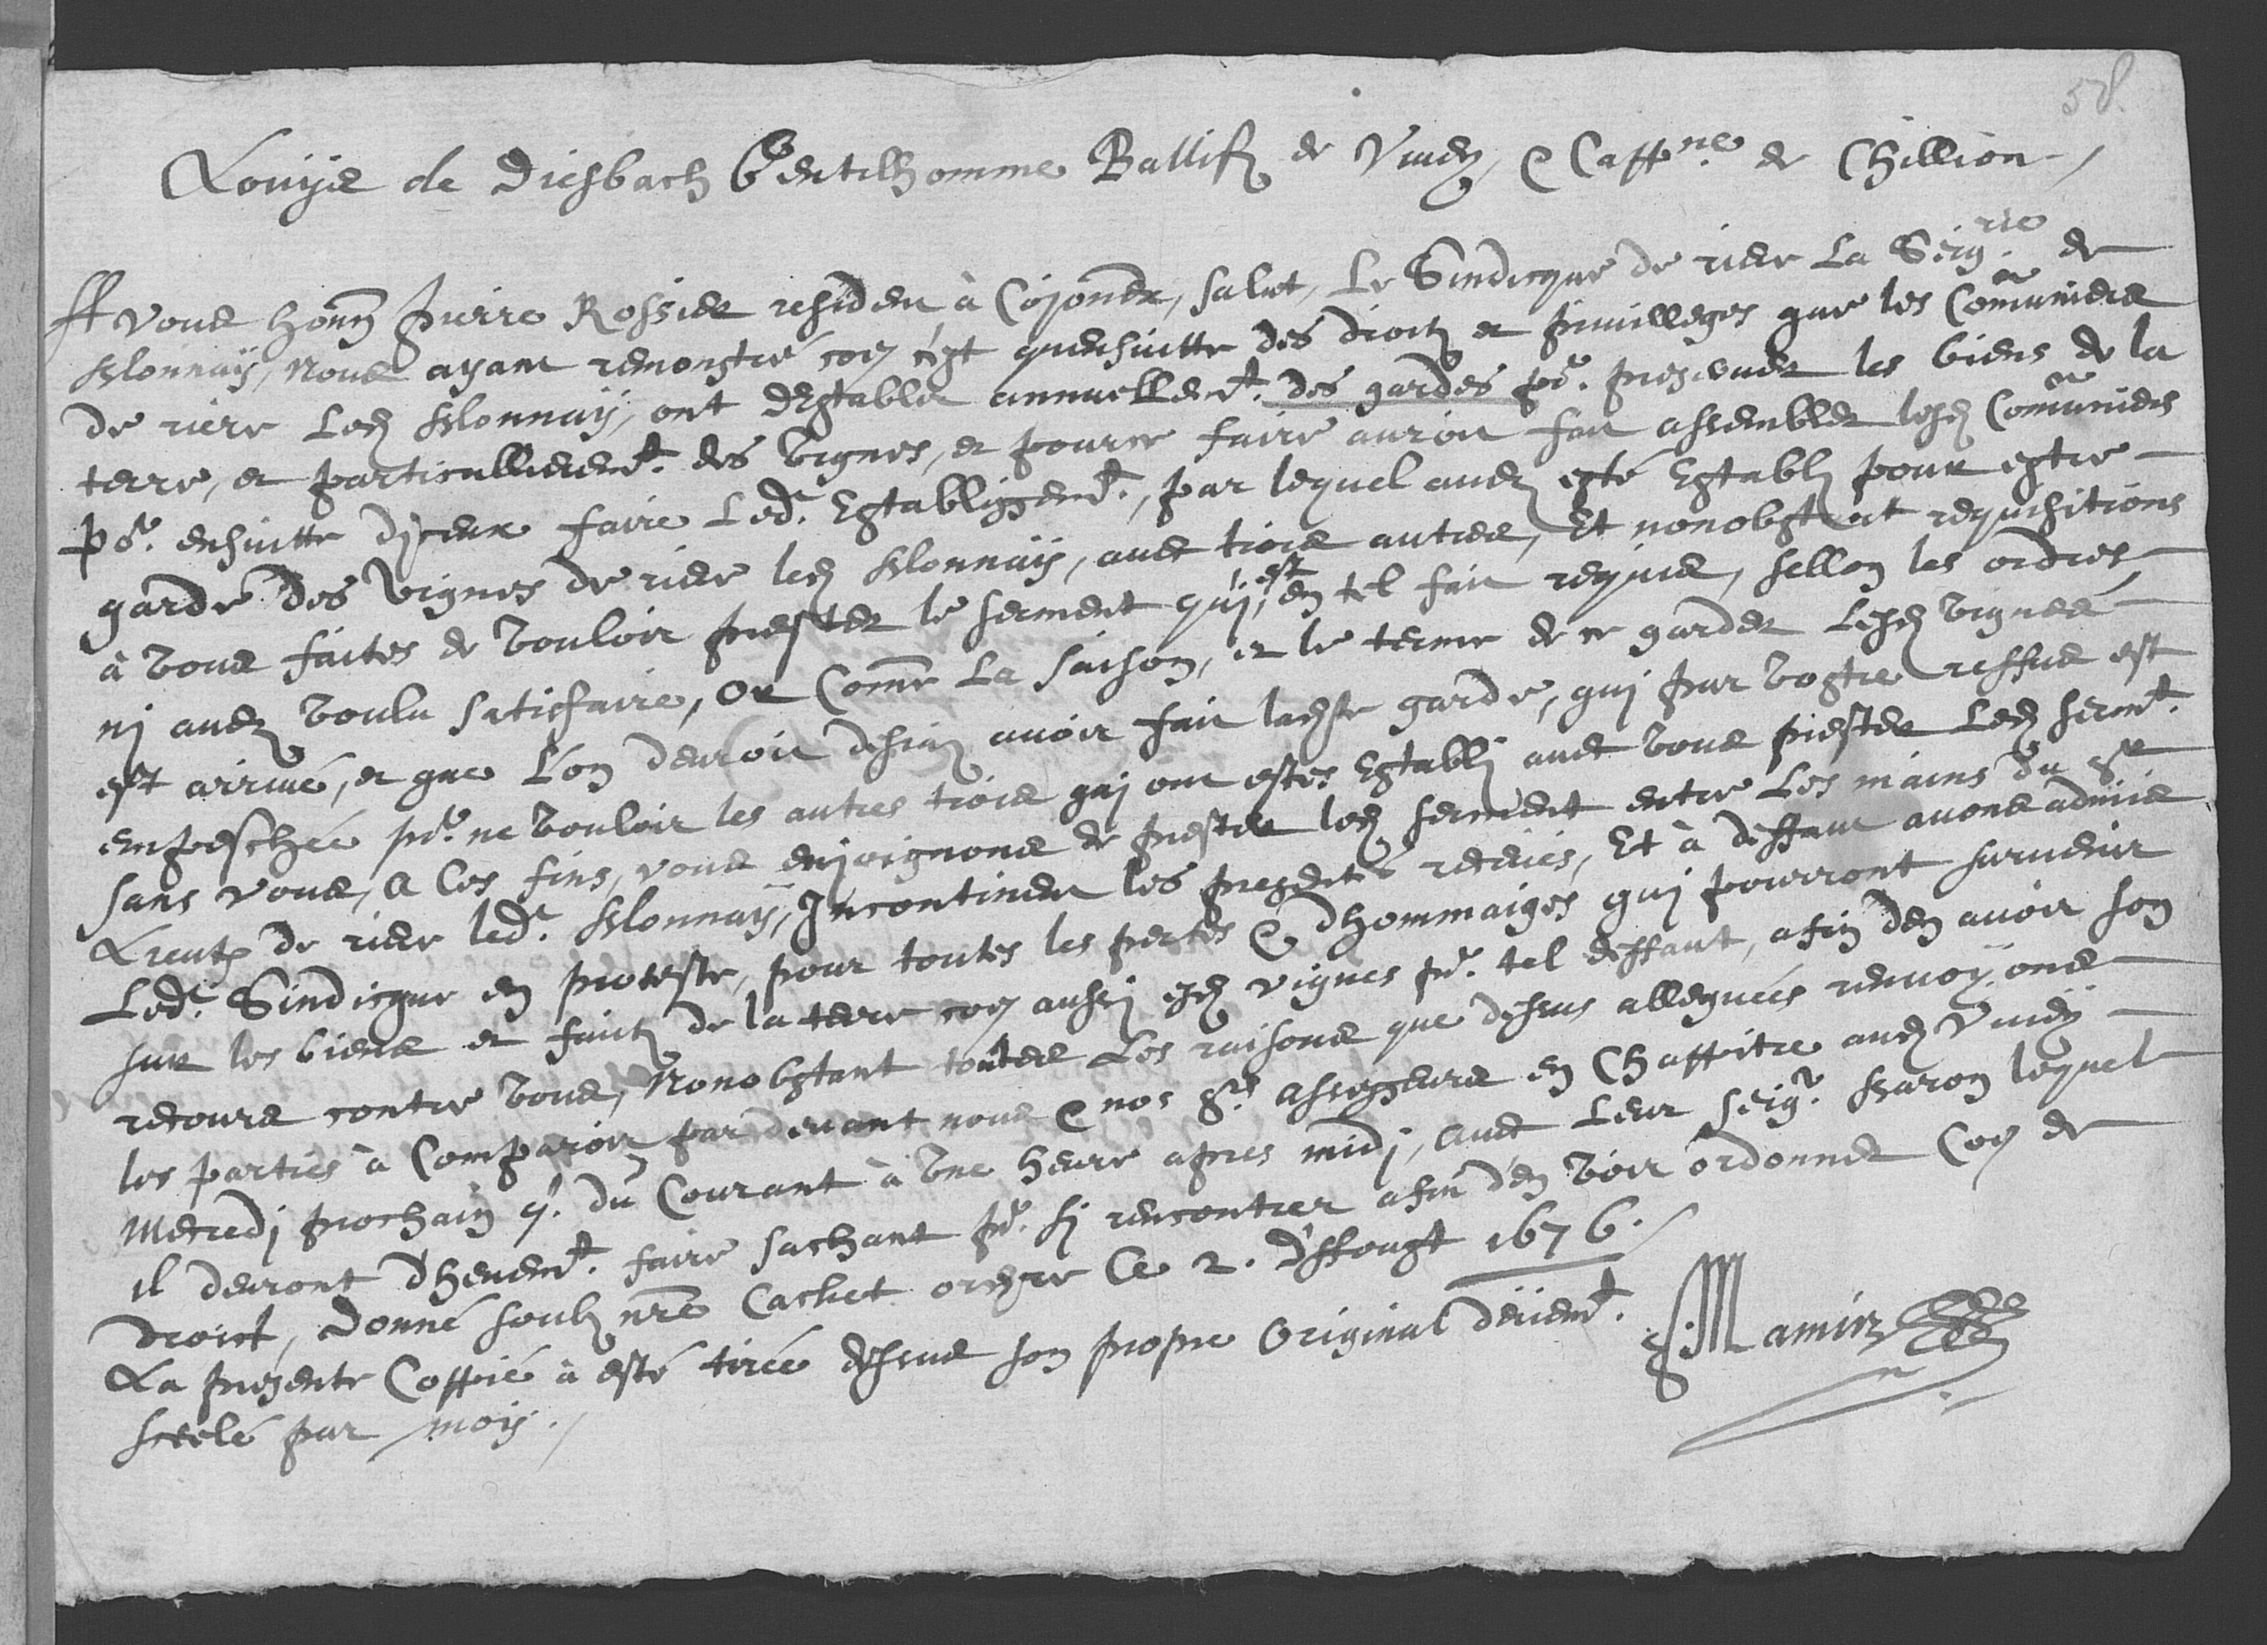 58.
Louys de Diesbach Gentilhomme Ballifz de Vivey, & Cappne de Chillion /
A vous honn Pierre Rossier resident à Cojonex, salut, Le Sindicque de riere La Seigrie de
Blonnaÿ, Nous ayant remonstré coe c'est quensuitte des droitz et privilleges que les Comuniers
de riere Led Blonnaÿ, ont d'Establir annuellemt. des gardes pr. preserver les biens de la
terre, et particullieremt. des vignes, et pource faire auroit fait assembler lesd Comuniers
pr. ensuitte d'jceux faire Led. Establissemt., par lequel avez esté Establj pour estre
garde des vignes de riere led Blonnaÿ, avec trois autres, Et nonobstant requisitions
à vous faites de vouloir prester le serment quj, est en tel fait requis, sellon les ordres
nj avez voulu satisfaire, Or Come La saison, et le terme de ce garder Lesd vignes
est arrivé, et que L'on devroit desja avoir fait ladste garde, quj par vostre reffus est
empeschée pr. ne vouloir les autres trois quj ont estes Establj avec vous prester Led sermt.
sans vous, A Ces fins, vous enjoignons de prester led serment entre Les mains du Sr
Lieut de riere led. Blonnaÿ, Jncontinent les presentes receües, Et à deffaut avons admis
Led. Sindicque en proteste, pour toutes les pertes & dhommaiges quj pourront survenir
sur les biens et fruitz de la terre coe aussj esd vignes pr. tel deffaut, afin den avoir son
recours contre vous, Nonobstant toutes Les raisons que dessus alleguées renvoÿons
les parties à Comparoir par devant nous & nos Srs Assesseurs en Chappitre aud Vivey
Mecredj prochain 9. du Courant à une heure apres midj, avec Leur Seigr. Baron lequel
il devront d'hevemt. faire sachant pr. sj rencontrer afin d'en voir ordonner Coe de
droict, Donné soubz nre Cachet ordre Ce 2. D'Aougst 1676. /
La presente Coppié à esté tirée dessus son propre Original deüemt.
scelé par moÿ. /